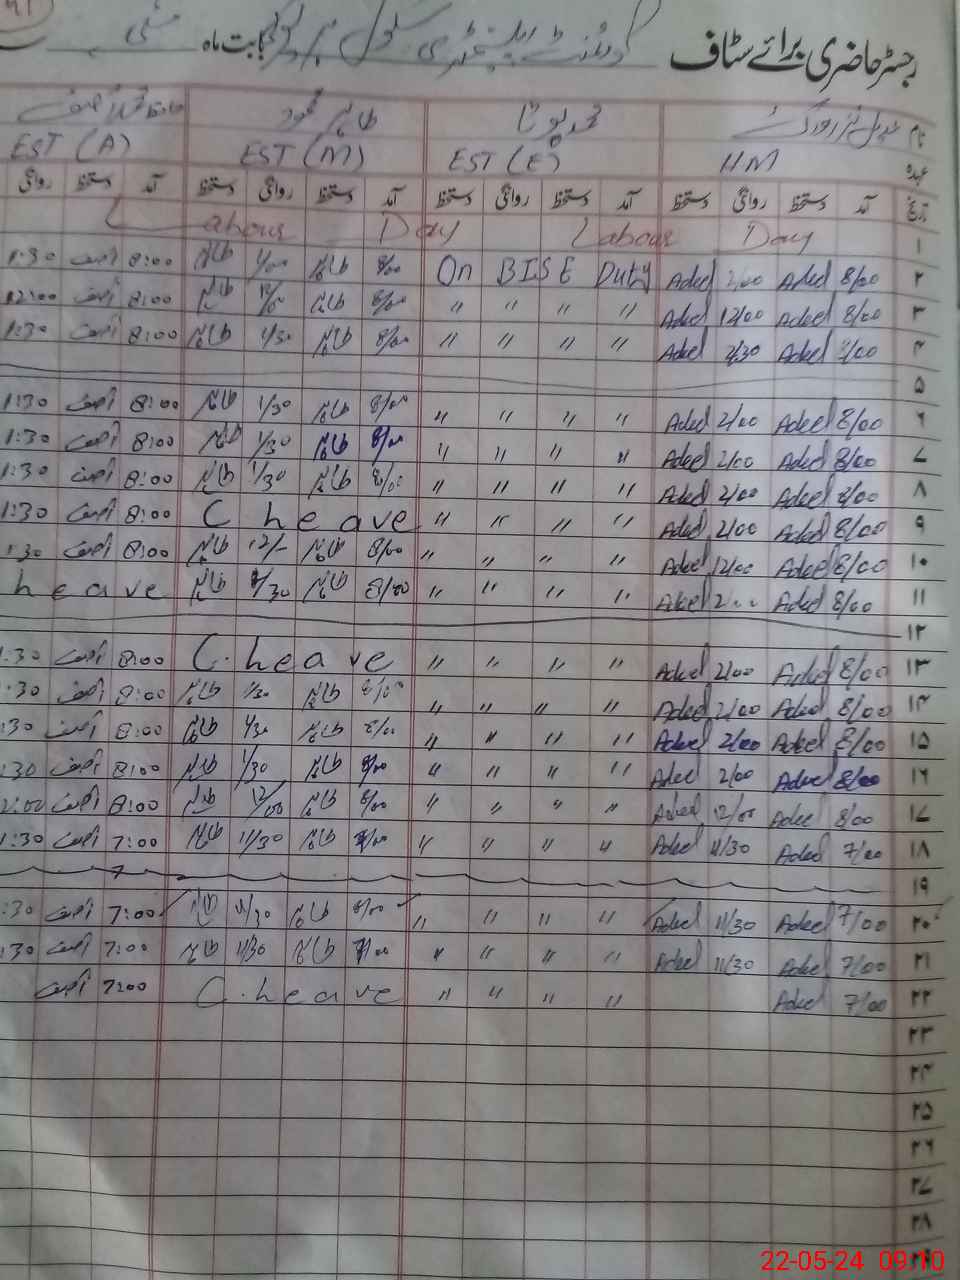 رجسٹر حاضری برائے سٹاف گورنمنٹ ایلیمنٹری سکول بابت ماہ مئی
نام محمد بوٹا طاہر محمود
عہدہ HM EST (E) EST (M) EST (A)
تاریخ آمد دستخط روانگی دستخط آمد دستخط روانگی دستخط آمد دستخط روانگی دستخط آمد دستخط روانگی
۱ Labour Day Labour Day
۲ 8/00 Adeel 2/00 Adeel On BISE Duty 8/00 طاہر 1/00 طاہر 8:00 آصف 1:30
۳ 8/00 Adeel 12/00 Adeel " " " " 8/00 طاہر 12/00 طاہر 8:00 آصف 12:00
۴ 8/00 Adeel 2/30 Adeel " " " " 8/00 طاہر 1/30 طاہر 8:00 آصف 1:30
۵
۶ 8/00 Adeel 2/00 Adeel " " " " 8/00 طاہر 1/30 طاہر 8:00 آصف 1:30
۷ 8/00 Adeel 2/00 Adeel " " " " 8/00 طاہر 1/30 طاہر 8:00 آصف 1:30
۸ 8/00 Adeel 2/00 Adeel " " " " 8/00 طاہر 1/30 طاہر 8:00 آصف 1:30
۹ 8/00 Adeel 2/00 Adeel " " " " C leave 8:00 آصف 1:30
۱۰ 8/00 Adeel 12/00 Adeel " " " " 8/00 طاہر 12/- طاہر 8:00 آصف :30
۱۱ 8/00 Adeel 2/00 Adeel " " " " 8/00 طاہر 1/30 طاہر leave
۱۲
۱۳ 8/00 Adeel 2/00 Adeel " " " " C. leave 8:00 آصف :30
۱۴ 8/00 Adeel 2/00 Adeel " " " " 8/00 طاہر 1/30 طاہر 8:00 آصف :30
۱۵ 8/00 Adeel 2/00 Adeel " " " " 8/00 طاہر 1/30 طاہر 8:00 آصف :30
۱۶ 8/00 Adeel 2/00 Adeel " " " " 8/00 طاہر 1/30 طاہر 8:00 آصف :30
۱۷ 8/00 Adeel 12/00 Adeel " " " " 8/00 طاہر 12/00 طاہر 8:00 آصف 2:00
۱۸ 7/00 Adeel 11/30 Adeel " " " " 7/00 طاہر 11/30 طاہر 7:00 آصف 1:30
۱۹
۲۰ 7/00 Adeel 11/30 Adeel " " " " 8/00 طاہر 11/30 طاہر 7:00 آصف :30
۲۱ 7/00 Adeel 11/30 Adeel " " " " 7/00 طاہر 11/30 طاہر 7:00 آصف :30
۲۲ 7/00 Adeel " " " " C. leave 7:00 آصف
۲۳
۲۴
۲۵
۲۶
۲۷
۲۸
۲۹
22-05-24 09:10